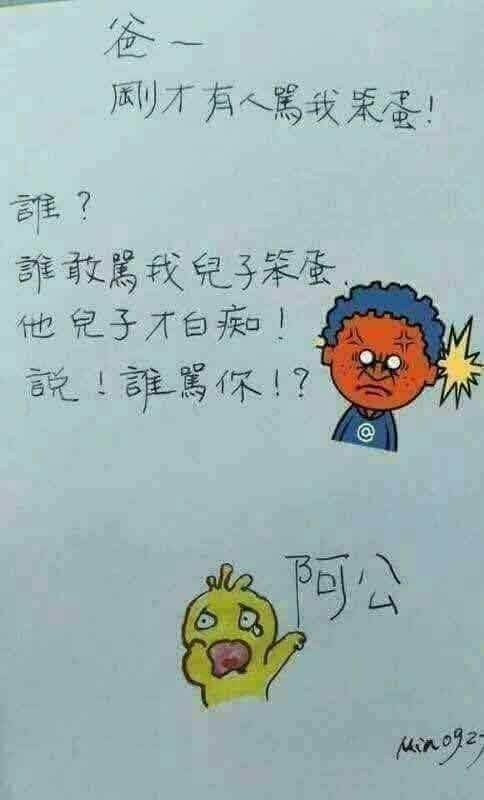 爸～
剛才有人罵我笨蛋!
誰?
誰敢罵我兒子笨蛋.
他兒子才白痴!
說!誰罵你!?
@
阿公
Min 0927